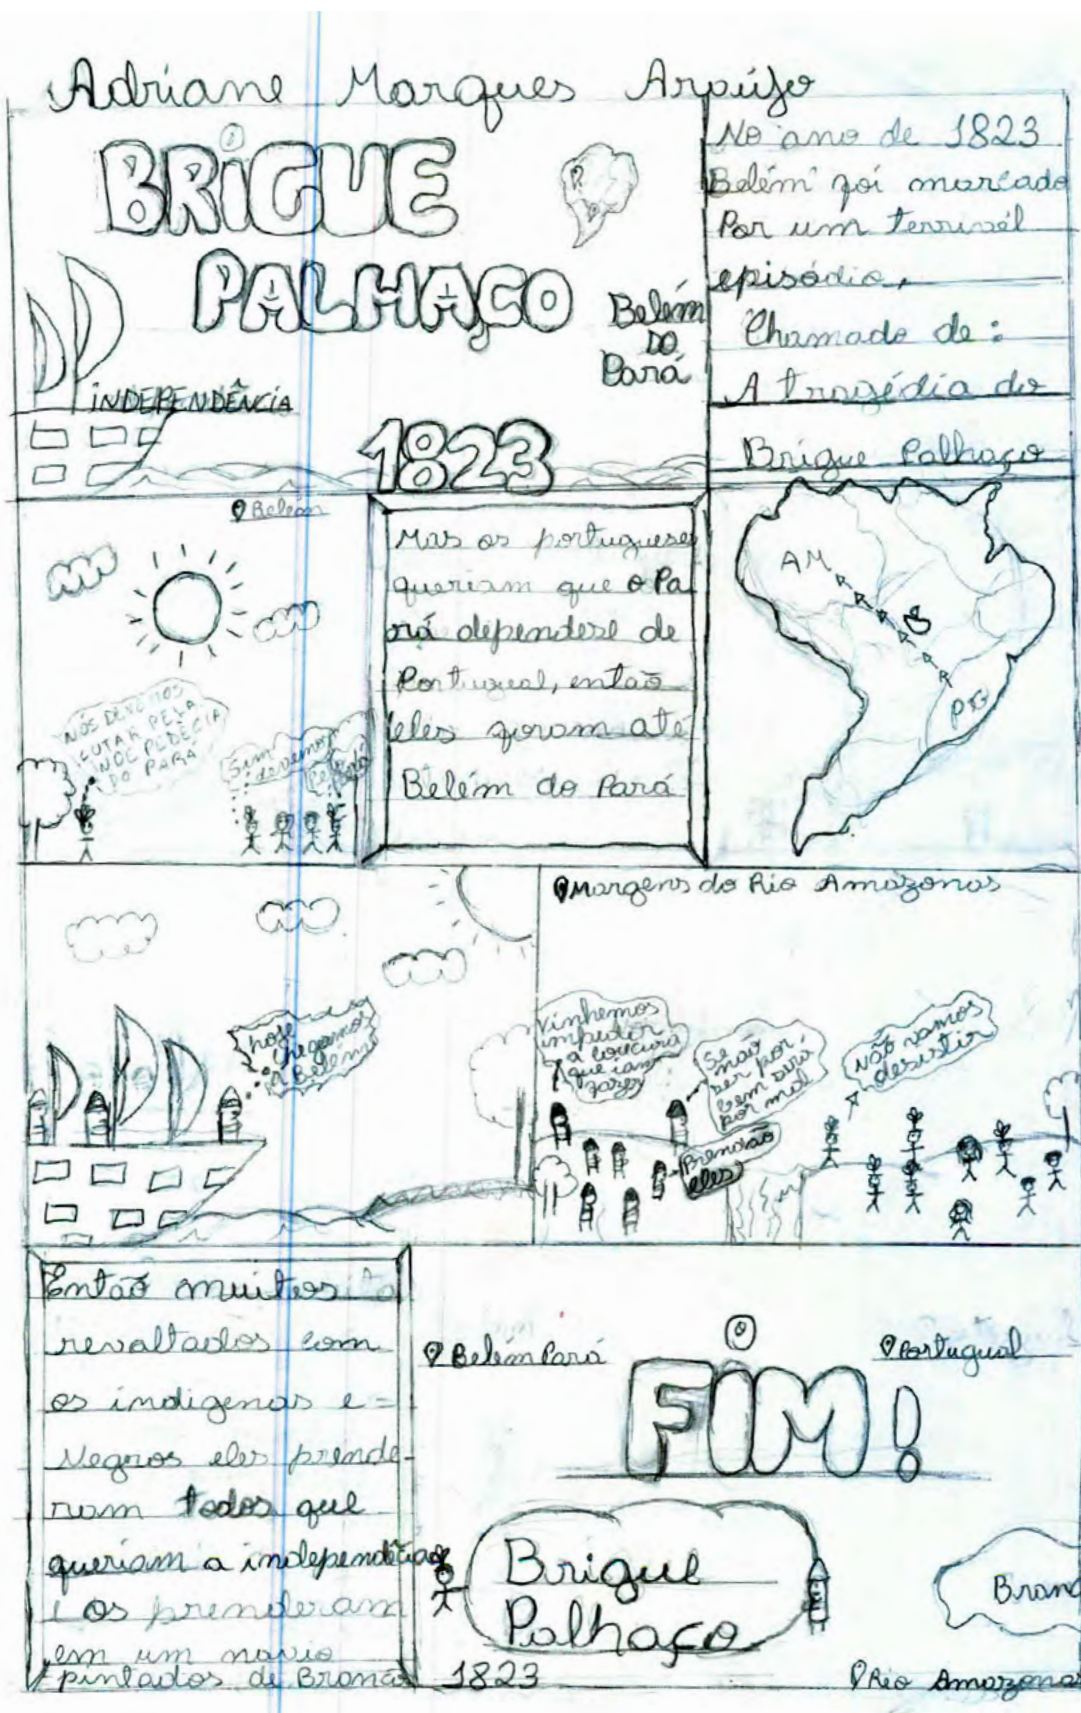 Adriane Marques Araújo
BRIGUE
PALHAÇO
Belém
DO
Pará
INDEPENDÊNCIA
1823
No ano de 1823
Belém foi marcado
Por um terrivél
episódio,
Chamado de:
A tragédia do
Brigue Palhaço
Belém
NÓS DEVEMOS
LUTAR PELA
INDEPEDÊCIA
DO PARÁ
Sim
devemos
Mas os portugueses
queriam que o Pa
rá dependese de
Portugual, então
eles foram até
Belém do Pará
AM
PTG
hoje
chegamos
a Belém
Margens do Rio Amazonas
Vinhemos
impedir
a loucura
que iam
fazer
Se
não
ser por
bem será
por mal
Prendão
eles
Não vamos
desistir
Então muitos
revoltados com
os indigenas e
Negros eles prende
ram todos que
queriam a independêcia
e os prenderam
em um navio
pintados de Branco
Belém Pará
Portugual
FIM!
Brigue
Palhaço
1823
Branc
Rio Amazonas